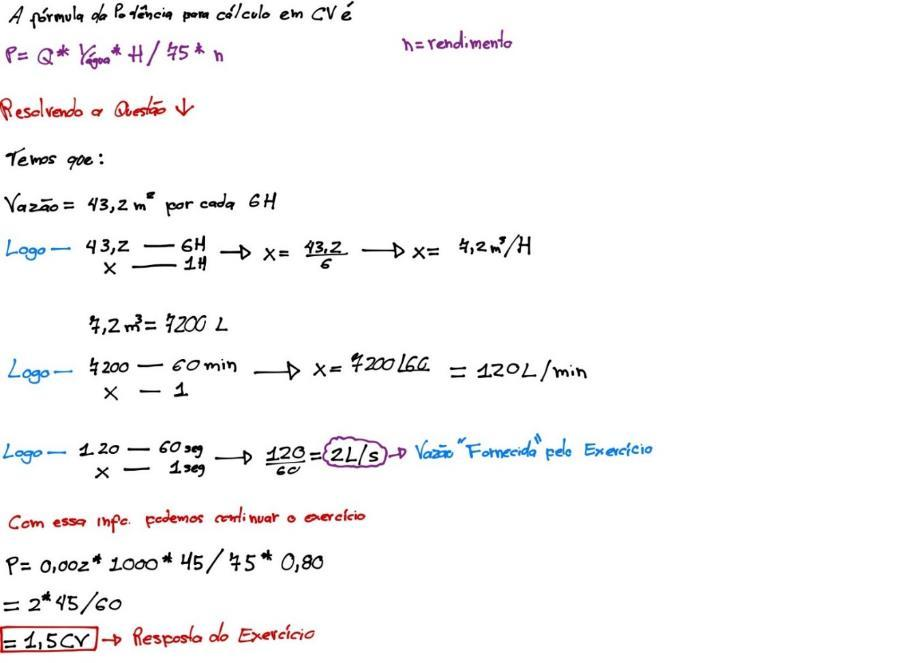 A fórmula da Potência para cálculo em CV é
P= Q* γágua* H / 75* n
n=rendimento
Resolvendo a Questão ↓
Temos que:
Vazão= 43,2 m³ por cada 6H
Logo— 43,2 — 6H → x= 43,2/6 → x= 7,2m³/H
x — 1H
7,2m³= 7200 L
Logo— 7200 — 60min → x= 7200/60 = 120L/min
x — 1
Logo— 120 — 60seg → 120/60=2L/s → Vazão "Fornecida" pelo Exercício
x — 1seg
Com essa info. podemos continuar o exercício
P= 0,002* 1000* 45/ 75* 0,80
= 2*45/60
= 1,5CV → Resposta do Exercício